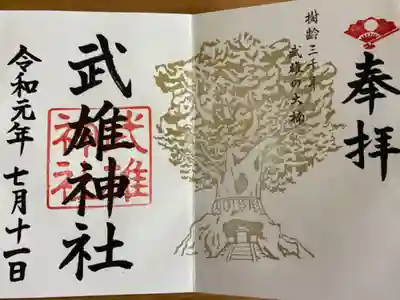 奉拝
樹齢三千年
武雄の大楠
武雄神社
武雄
神社
令和元年 七月十一日